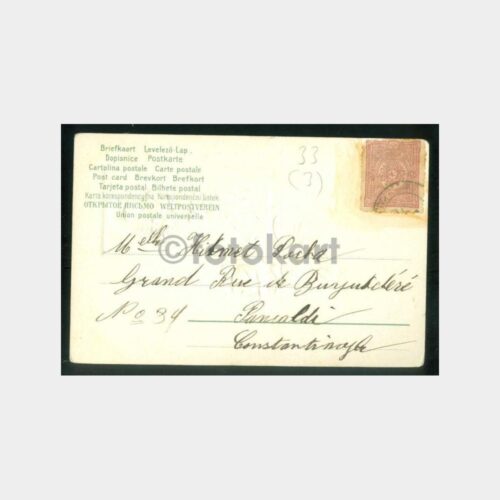 Briefkaart Levelező-Lap.
Dopisnice Postkarte
Cartolina postale Carte postale
Post card Brevkort Brefkort
Tarjeta postal Bilhete postal
Karta korespondencyjna Korespondenční lístek
ОТКРЫТОЕ ПИСЬМО WELTPOSTVEREIN
Union postale universelle
33
(3)
©fotokart
Melle Hikmet
Grand Rue de Buyukdéré
No 34 Pancaldi
Constantinople